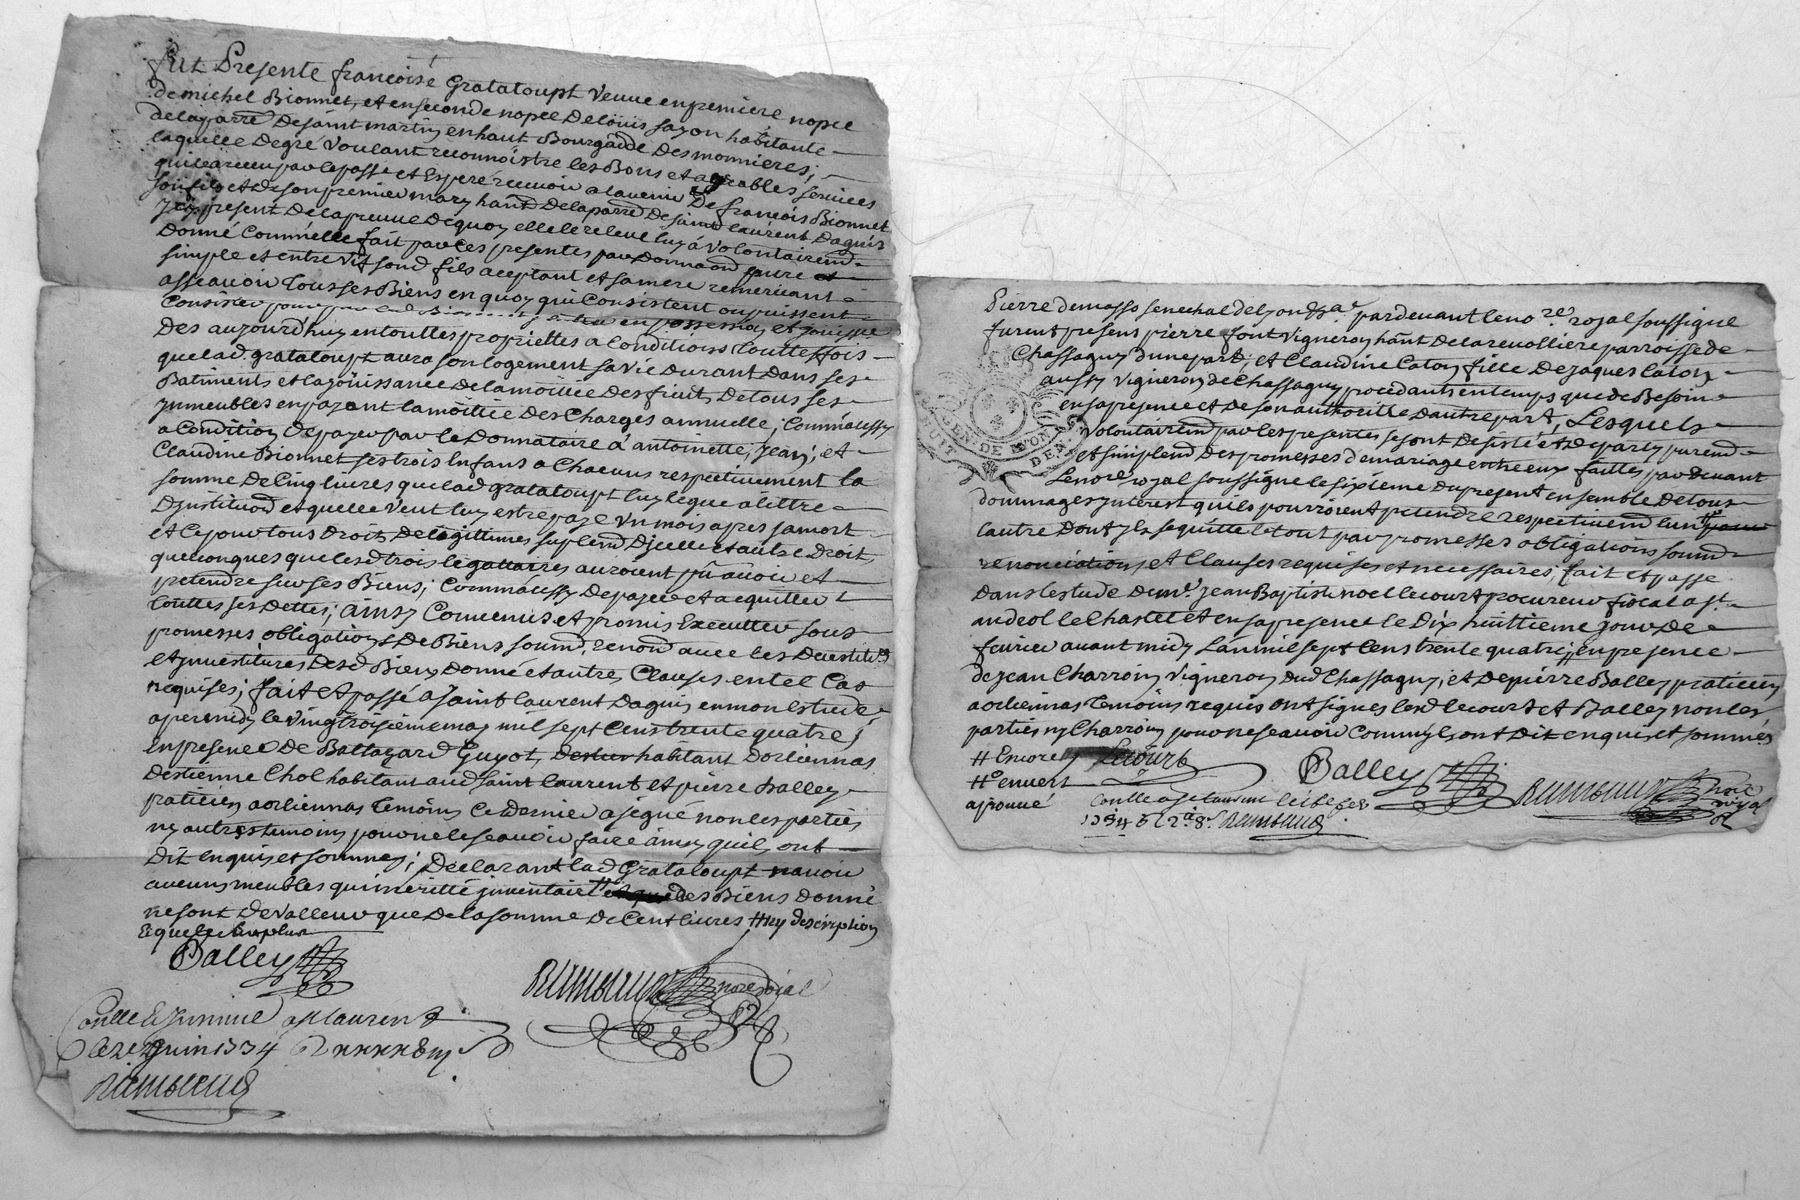 fut Presente francoise Grataloupt Veuve en premiere nopce
de michel Bionnet, et en seconde nopce de loüis fayon habitante
de la parre de saint martin en haut Bourgade des monnieres;
laquelle de gré voulant reconnoistre les Bons et agreables services
quelle a receu par le passé et Espere recevoir a lavenir de francois Bionnet
son fils et de son premier mary hant de la parre de saint laurent dagnis
present de la preuve de quoy elle le releve luy a volontairemt
donné Comme elle fait par ces presentes par donnaon pure et
simple et entre Vif sond fils aceptant et sa mere remerciant
assavoir Tous ses Biens en quoy qui Consistent ou puissent
Consister pour en possession et jouisse
des aujourdhuy en touttes propriettes a Conditions Touttesfois
que lad. grataloupt aura son logement sa vie durant dans ses
Batiments et la joüissance de la moittie des fruits de tous ses
jmmeubles en payant la moittie des Charges annuelle; Comme aussy
a Condition de payer par le Donnataire a antoinette, jean; et
Claudine Bionnet ses trois Enfans a Chacuns respectivement la
somme de Cinq livres que lad grataloupt luy legue a littre
djnstituon et quelle Veut luy estre paye un mois apres sa mort
et ce pour tous Droits de legittimes suplemt djcelle et autre Droits
quelconques que lesd trois legattaires auroient pû avoir et
pretendre sur ses Biens; Comme aussy de payer et acquitter
touttes ses dettes; ainsy Convenus et promis Executter sous
promesses obligations de Biens soumd. renond avec les devestitur
et jnvestitures desd Biens donné et autres Clauses en tel Cas
requises; fait et passé a saint laurent dagnis en mon Estude
apres midy le vingt troisieme may mil sept Cens trente quatre;
en presence de Baltazard Guyot, habitant dorliennas
destienne Chol habitant aud saint laurent et pierre Balley
praticien a orliennas temoins Ce dernier a signé non les parties
ny autres temoins pour ne le scavoir faire ainsy quils ont
dit Enquis et sommes; declarant lad Grataloupt navoir
aucuns meubles qui meritté jnventaire des Biens donné
ne sont de valleur que de la somme de Cent livres ny description
Balley
Rambaud nore Royal
Conlle & jnsinué a st laurent
le 22 juin 1734
Rambaud
Pierre de masso senechal de lyon par devant le nore. royal soussigné
furent presens pierre font Vigneron hant de la revolliere parroisse de
Chassagny dune part; et Claudine Caton fille de jaques Caton
aussy Vigneron de Chassagny procedants en temps que de Besoin
en sa presence et de son authoritte dautre part, Lesquels
volontairemt par les presentes se sont desisté et departy puremt
et simplemt des promesses de mariage entre eux faittes par devant
Le nore royal soussigné le sixieme du present ensemble de tous
dommages jnterest quils pourroient pretendre respectivemt lun
lautre dont jls se quitte le tout par promesses obligations soumd
renonciations et Clauses requises et necessaires; fait et passé
dans lestude de mr. jean Baptiste noel lecourt procureur fiscal a st
andeol le Chastel et en sa presence le dix huittieme jour de
fevrier avant midy Lan mil sept Cens trente quatre, en presence
de jean Charroin Vigneron dud Chassagny; et de pierre Balley praticien
a orliennas temoins requis ont signes lesd lecourt et Balley non les
parties ny Charroin pour ne scavoir Comme jls ont dit enquis et sommés
# Encore
# envers
aprouvé
Lecourt
Balley
Rambaud nore royal
Conlle a st laurent le
1734
Rambaud
GEN. DE LYON